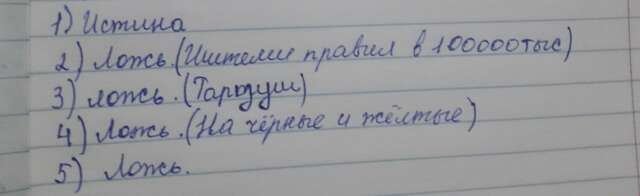 1) Истина
2) Ложь.(Иштеми правил в 100000тыс)
3) ложь.(Тардуш)
4) Ложь.(На чёрные и жёлтые)
5) Ложь.